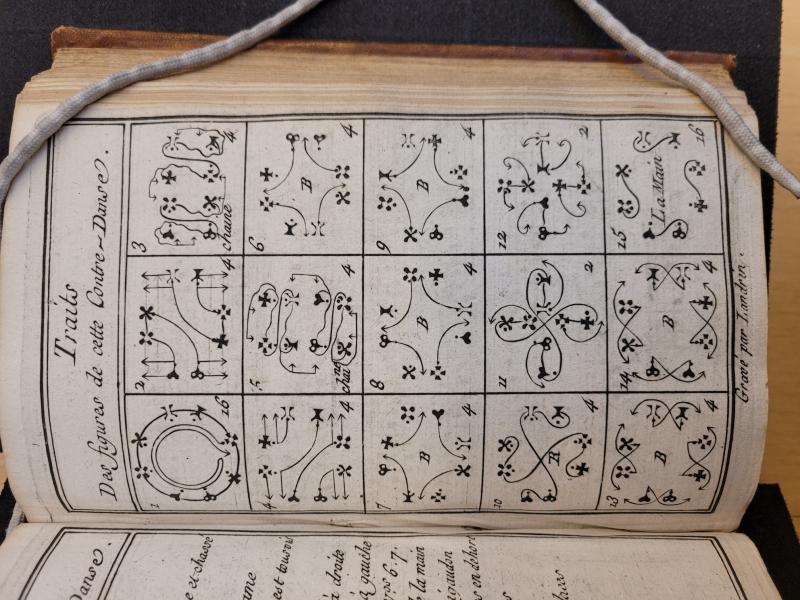 Danse.
et chassé
ame
à droite
gauche
6.7.
la main
en dehors
Traits
Des figures de cette Contre-Danse.
1 16
2 4
3 chaine 4
4 4
5 chai.ne 4
6 B 4
7 B 4
8 B 4
9 B 4
10 R 4
11 2
12 2
13 B 4
14 B 4
15 La Main 16
Gravé par Landrin.